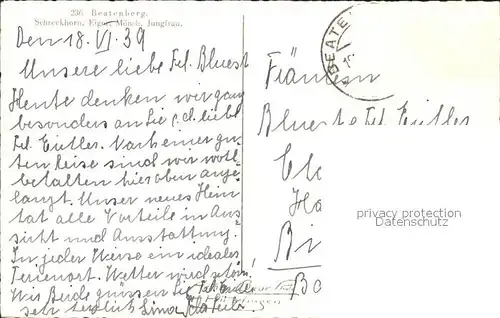 236 Beatenberg.
Schreckhorn, Eiger, Mönch, Jungfrau.
Den 18. VI. 39
Unsere liebe Frl. Bluest
Heute denken wir ganz
besonders an Sie &
Frl. Eutler. Nach einer gu-
ten Reise sind wir wohl-
behalten hier oben ange-
langt. Unser neues Heim
hat alle Vorteile in Aus-
sicht und Ausstattung.
In jeder Weise ein ideales
Ferienort. Wetter wird schön!
Wir Beide grüssen Sie
sehr herzlich
BEATE
Fräulein
Bluest & Frl. Eutler
Ch
Ha
Bi
Ba
privacy protection
Datenschutz